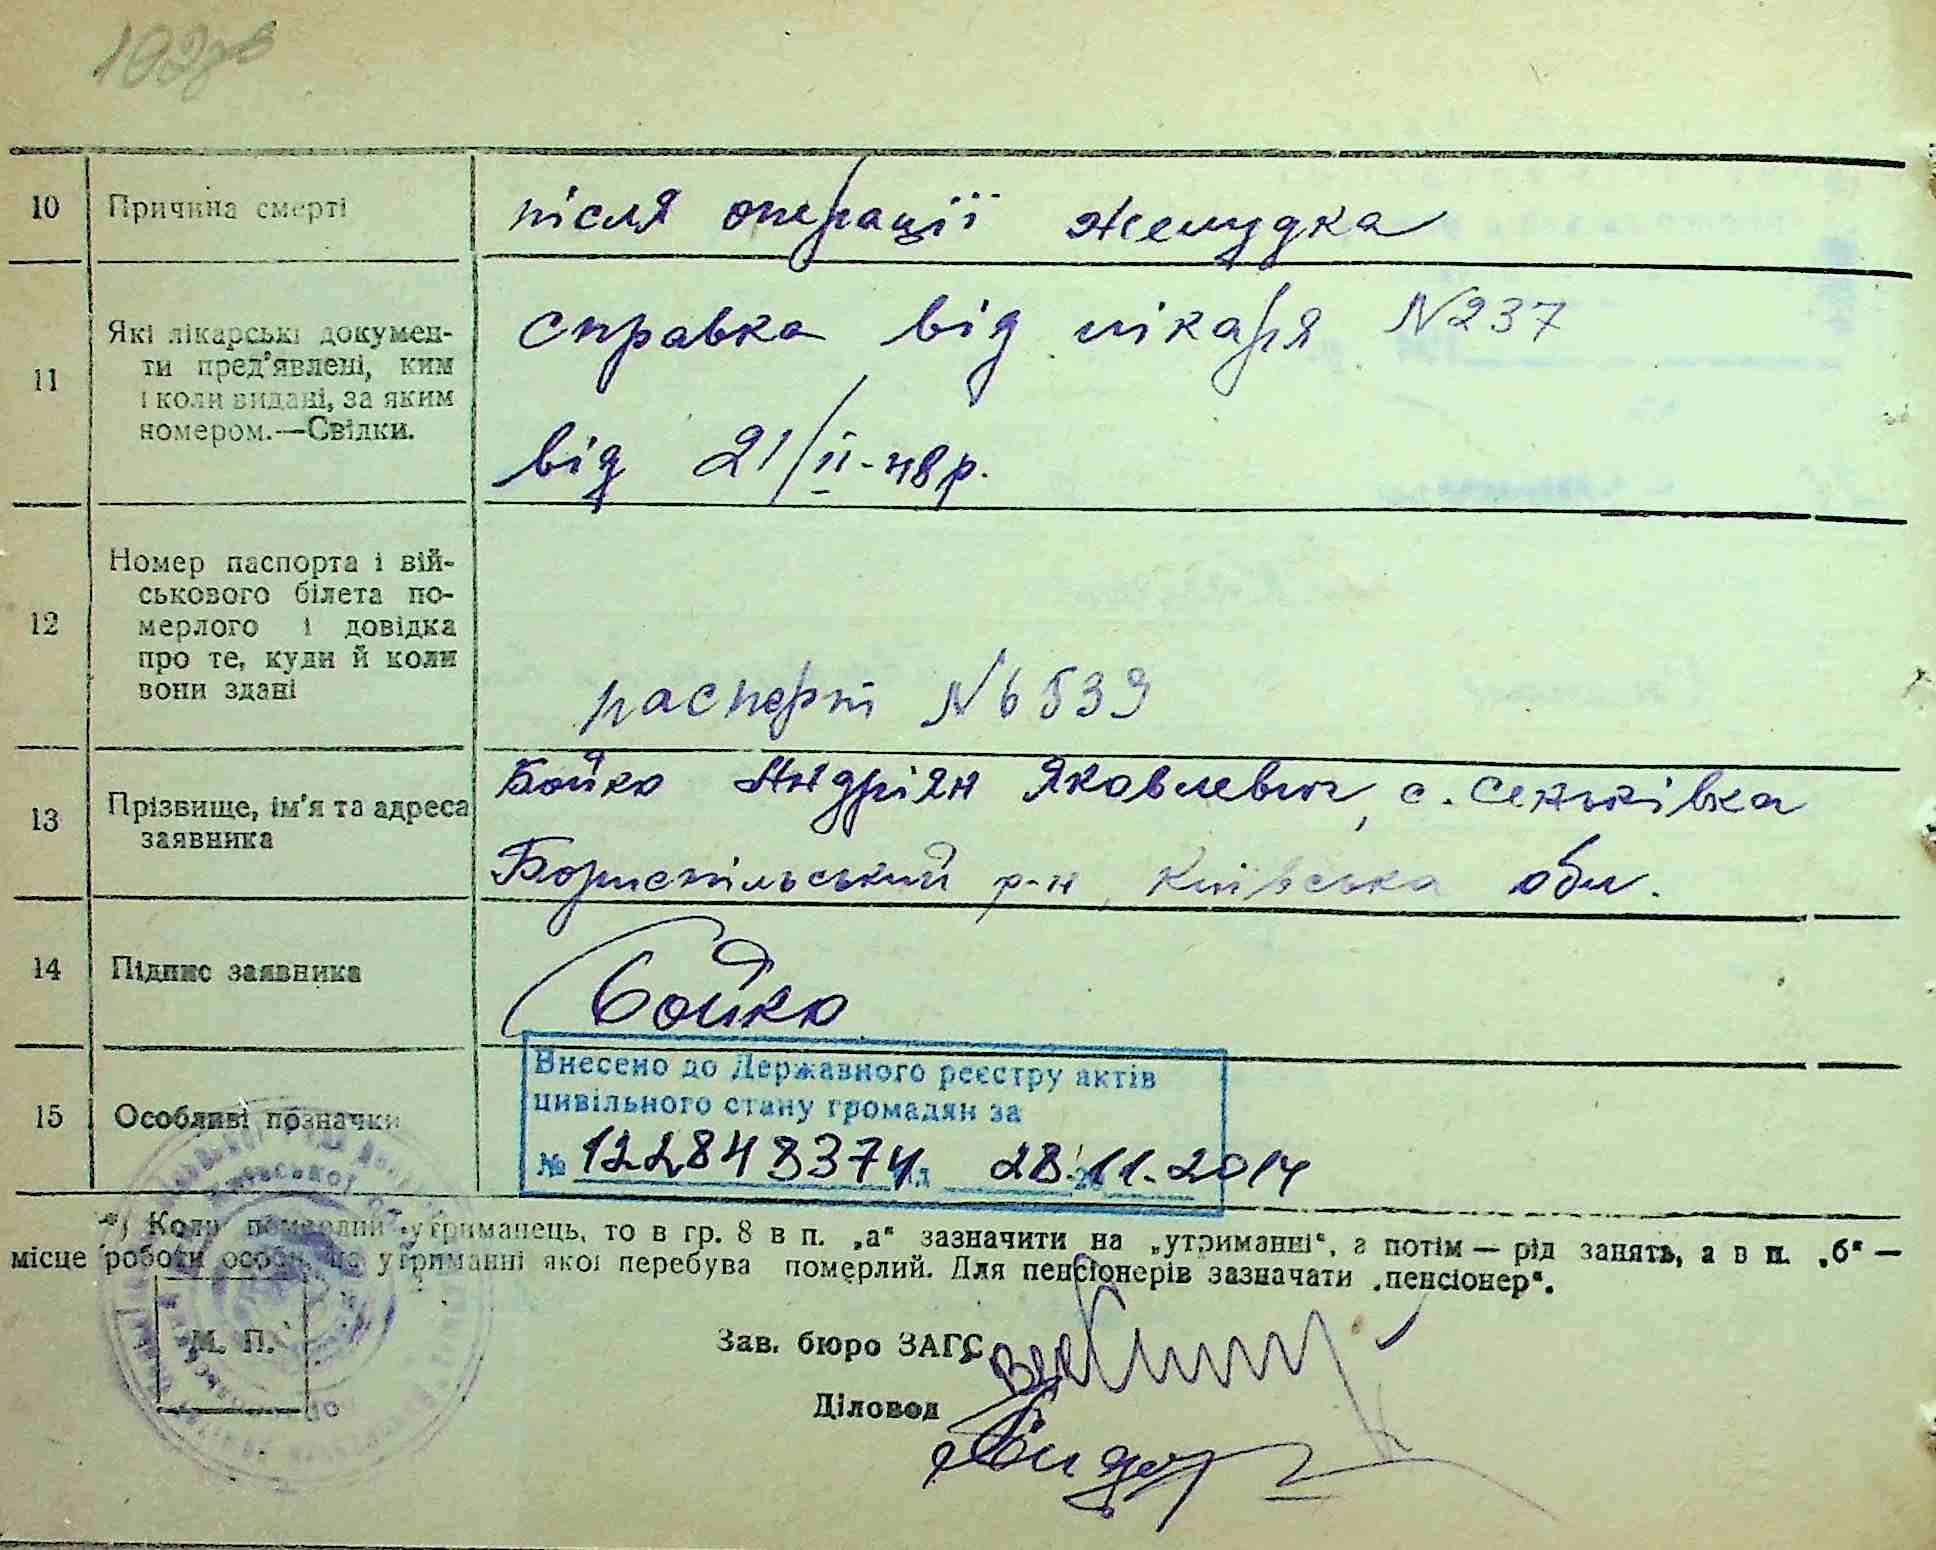 10 Причина смерті після операції желудка
11 Які лікарські докумен-
ти пред'явлені, ким
і коли видані, за яким
номером.—Свідки.
справка від лікаря N237
від 21/II-48р.
12 Номер паспорта і вій-
ськового білета по-
мерлого і довідка
про те, куди й коли
вони здані
распорт N6539
13 Прізвище, ім'я та адреса
заявника
Бойко Андріян Яковлевич, с. Сеньківка
Бориспільський р-н, Київська обл.
14 Підпис заявника Бойко
15 Особливі позначки
Внесено до Державного реєстру актів
цивільного стану громадян за
№ 28.11.2014
*) Коли померлий утриманець, то в гр. 8 в п. „а“ зазначити на „утриманні“, а потім — рід занять, а в п. „б“ —
місце роботи особи, на утриманні якої перебува померлий. Для пенсіонерів зазначати „пенсіонер“.
М. П.
Зав. бюро ЗАГС
Діловод